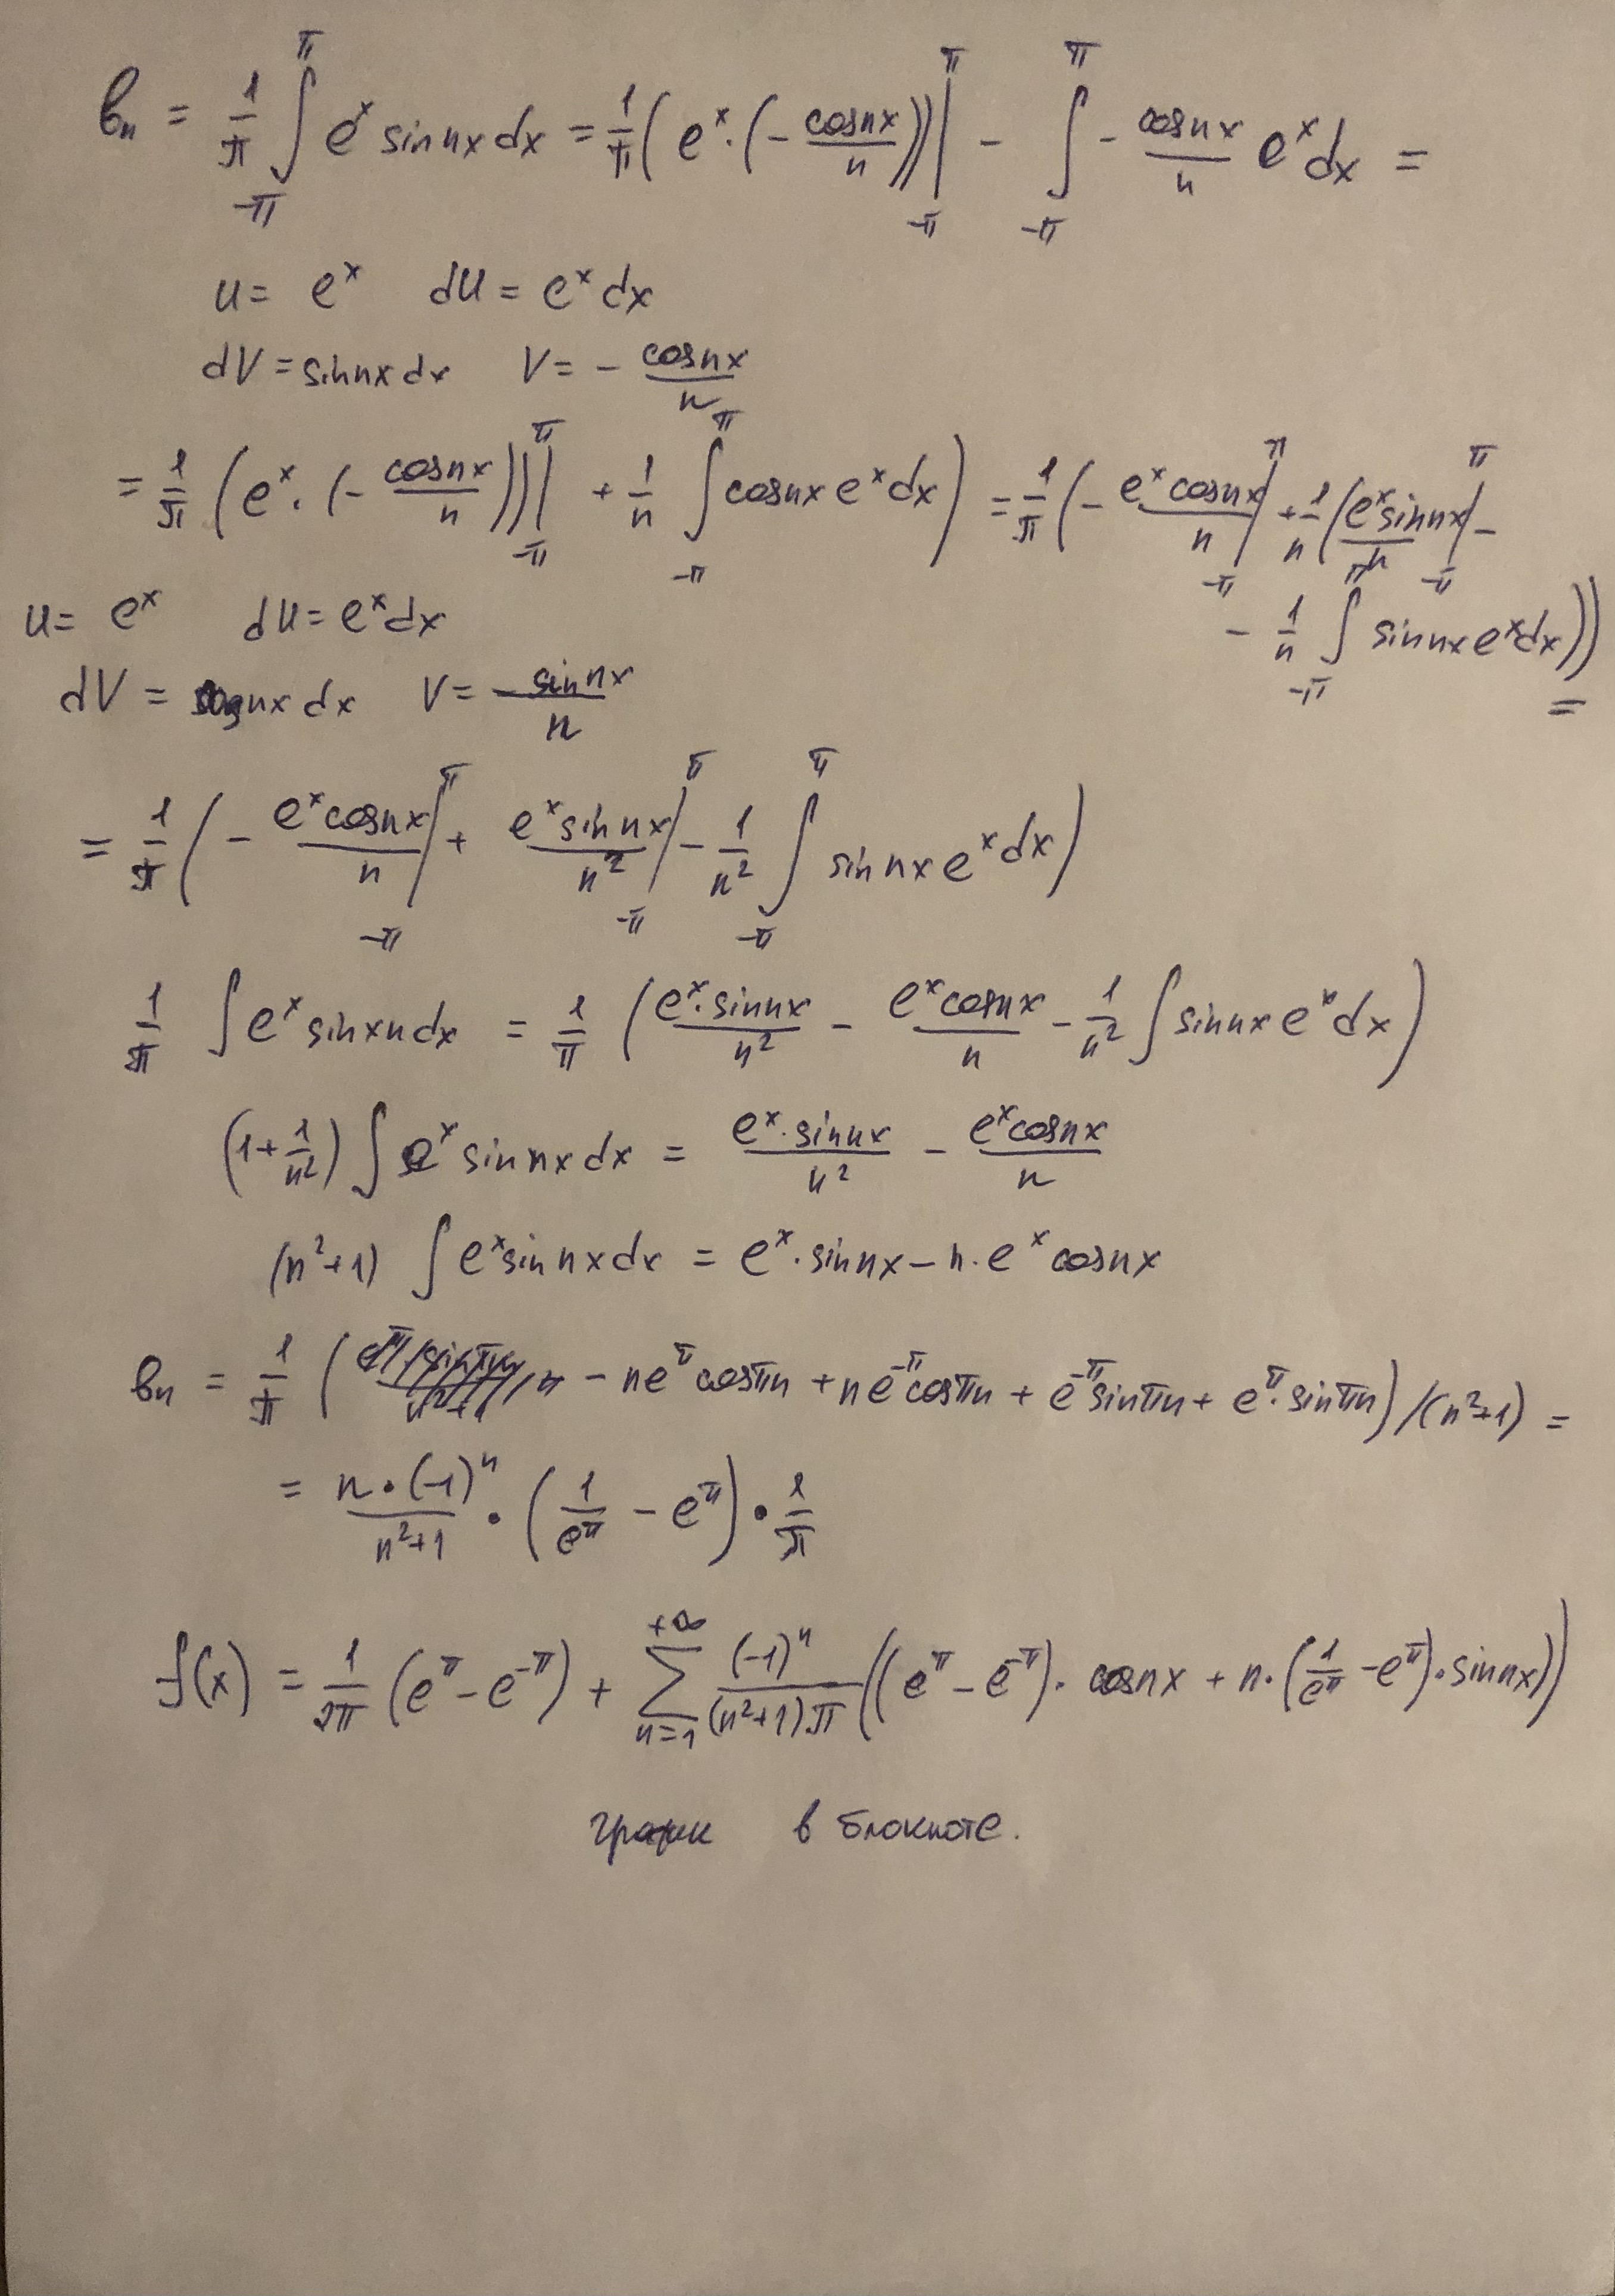 bₙ = 1/π ∫_{-π}^{π} eˣ sin nx dx = 1/π (eˣ · (- cos nx / n))|_{-π}^{π} - ∫_{-π}^{π} - cos nx / n eˣ dx =
u = eˣ du = eˣ dx
dV = sin nx dx V = - cos nx / n
= 1/π (eˣ · (- cos nx / n))|_{-π}^{π} + 1/n ∫_{-π}^{π} cos nx eˣ dx) = 1/π (- eˣ cos nx / n |_{-π}^{π} + 1/n (eˣ sin nx / n |_{-π}^{π} -
- 1/n ∫_{-π}^{π} sin nx eˣ dx)) =
u = eˣ du = eˣ dx
dV = cos nx dx V = sin nx / n
= 1/π (- eˣ cos nx / n |_{-π}^{π} + eˣ sin nx / n² |_{-π}^{π} - 1/n² ∫_{-π}^{π} sin nx eˣ dx)
1/π ∫ eˣ sin xn dx = 1/π (eˣ · sin nx / n² - eˣ cos nx / n - 1/n² ∫ sin nx eˣ dx)
(1 + 1/n²) ∫ eˣ sin nx dx = eˣ · sin nx / n² - eˣ cos nx / n
(n² + 1) ∫ eˣ sin nx dx = eˣ · sin nx - n · eˣ cos nx
bₙ = 1/π ( - n e^π cos πn + n e^{-π} cos πn + e^{-π} sin πn + e^π · sin πn) / (n² + 1) =
= n · (-1)ⁿ / (n² + 1) · (1/e^π - e^π) · 1/π
f(x) = 1/2π (e^π - e^{-π}) + ∑_{n=1}^{+∞} (-1)ⁿ / (n² + 1)π ((e^π - e^{-π}) · cos nx + n · (1/e^π - e^π) · sin nx))
график в блокноте.